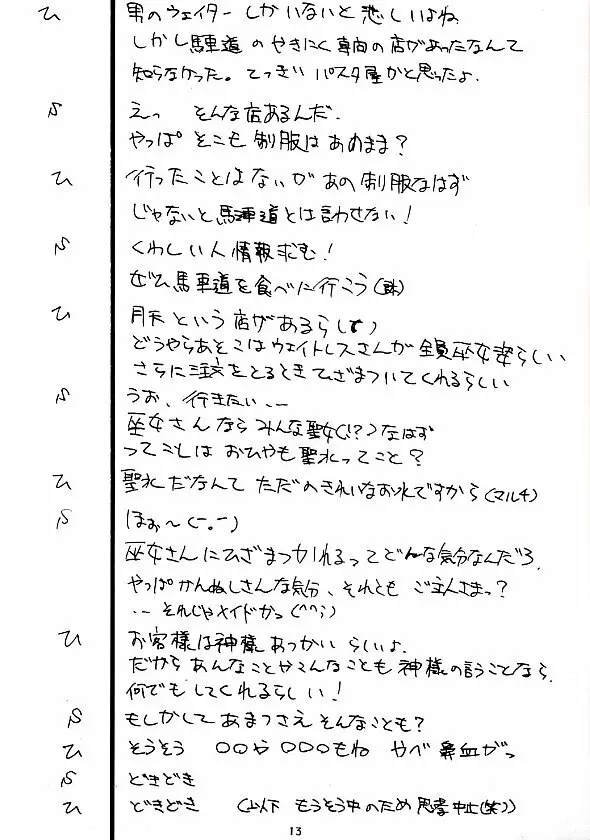 ひ 男のウェイターしかいないと悲しいよね
しかし馬車道のやきにく専向の店があったなんて
知らなかった。てっきりパスタ屋かと思ったよ.
S えっ そんな店あるんだ.
やっぱ そこも制服はあのまま?
ひ 行ったことはないがあの制服なはず
じゃないと馬車道とは言わせない!
S くわしい人情報求む!
ぜひ馬車道を食べに行こう(謎)
ひ 月天という店があるらしい
どうやらあそこはウェイトレスさんが全員巫女姿らしい
さらに注文をとるときひざまついてくれるらしい
S うお、行きたい、--
巫女さんならみんな聖女(!?)なはず
ってことは おひやも聖水ってこと?
ひ 聖水だなんて ただのきれいなお水ですから(マルチ)
S ほぉ～(-。-)
巫女さんにひざまつかれるってどんな気分なんだろ.
やっぱかんぬしさんな気分、それとも ご主人さまっ?
-- それじゃメイドかっ(^^;)
ひ お客様は神様あっかいらしいよ.
だからあんなことやこんなことも神様の言うことなら.
何でもしてくれるらしい!
S もしかしてあまつさえそんなことも?
ひ そうそう ○○や○○○もね やべ鼻血がっ
S どきどき
ひ どきどき (以下 もうそう中のため思考中止(笑))
13